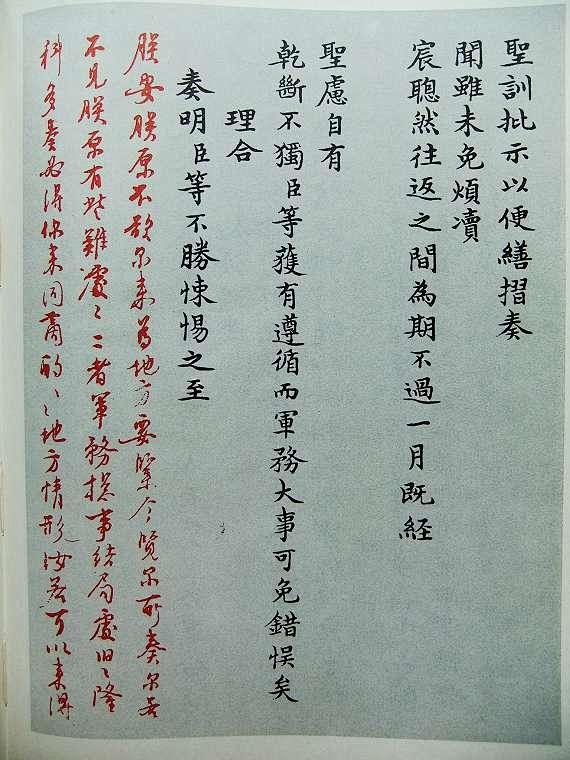 聖訓批示以便繕摺奏
聞雖未免煩瀆
宸聰然往返之間為期不過一月既経
聖慮自有
乾斷不獨臣等獲有遵循而軍務大事可免錯悞矣
理合
奏明臣等不勝悚惕之至
朕安朕原不欲尔来為地方要緊今覽尔所奏尔若
不見朕原有些難處難處二者軍務總事結局處舊舊隆
科多奏必得你来同商酌商酌地方情形汝若可以来得